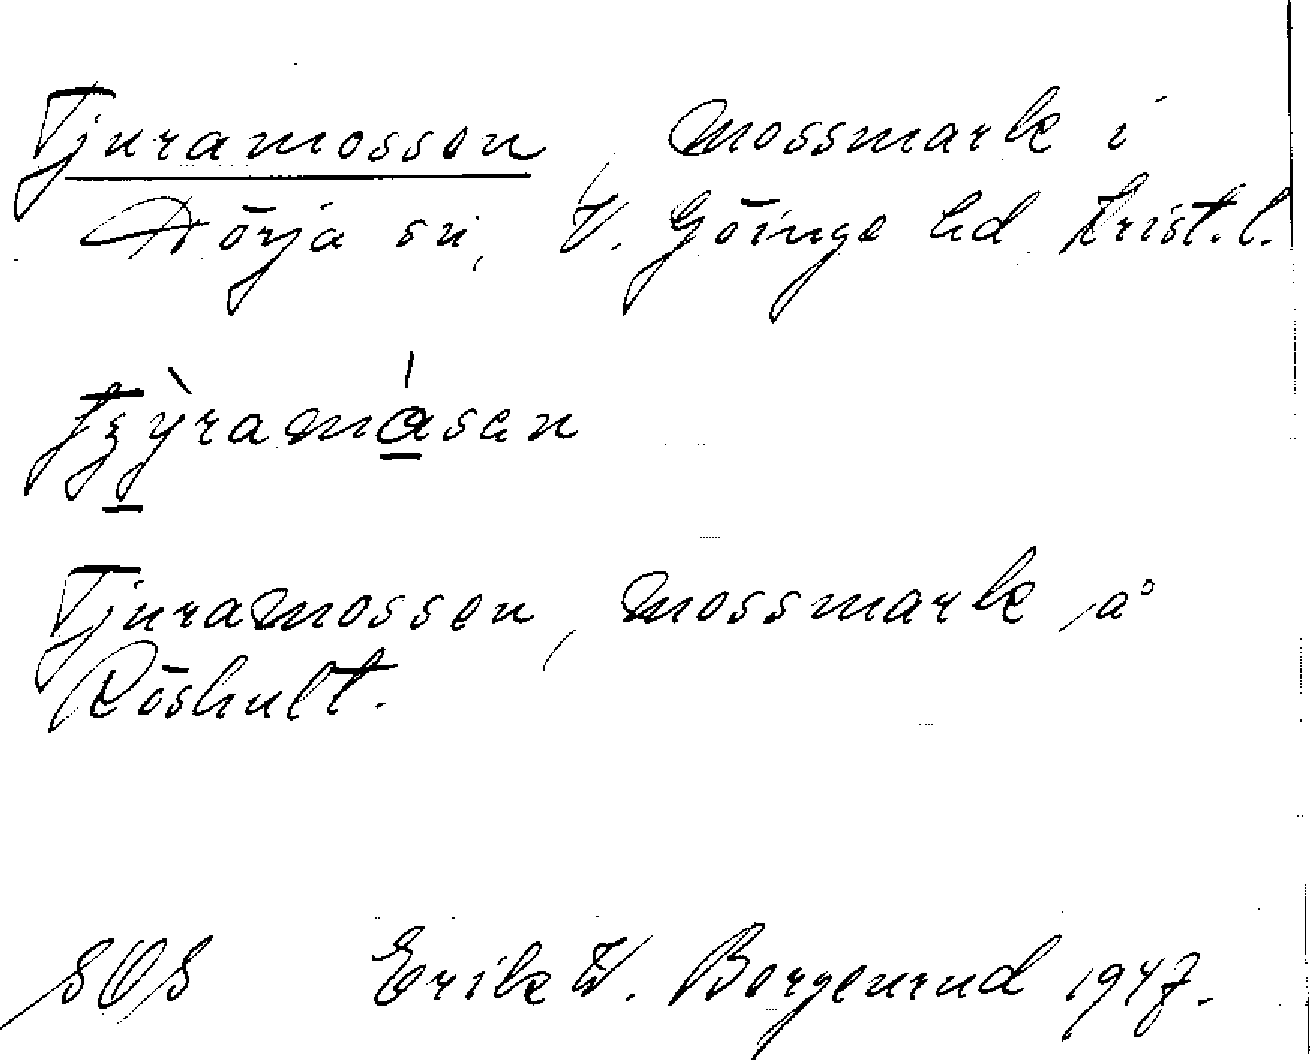 Tjuramossen, mossmark i
Hörja sn, V. Göinge hd Krist.l.
tʒỳ̠ramá̠sən
Tjuramossen, mossmark å
Röshult.
SOS Erik W. Borgenrud 1947.